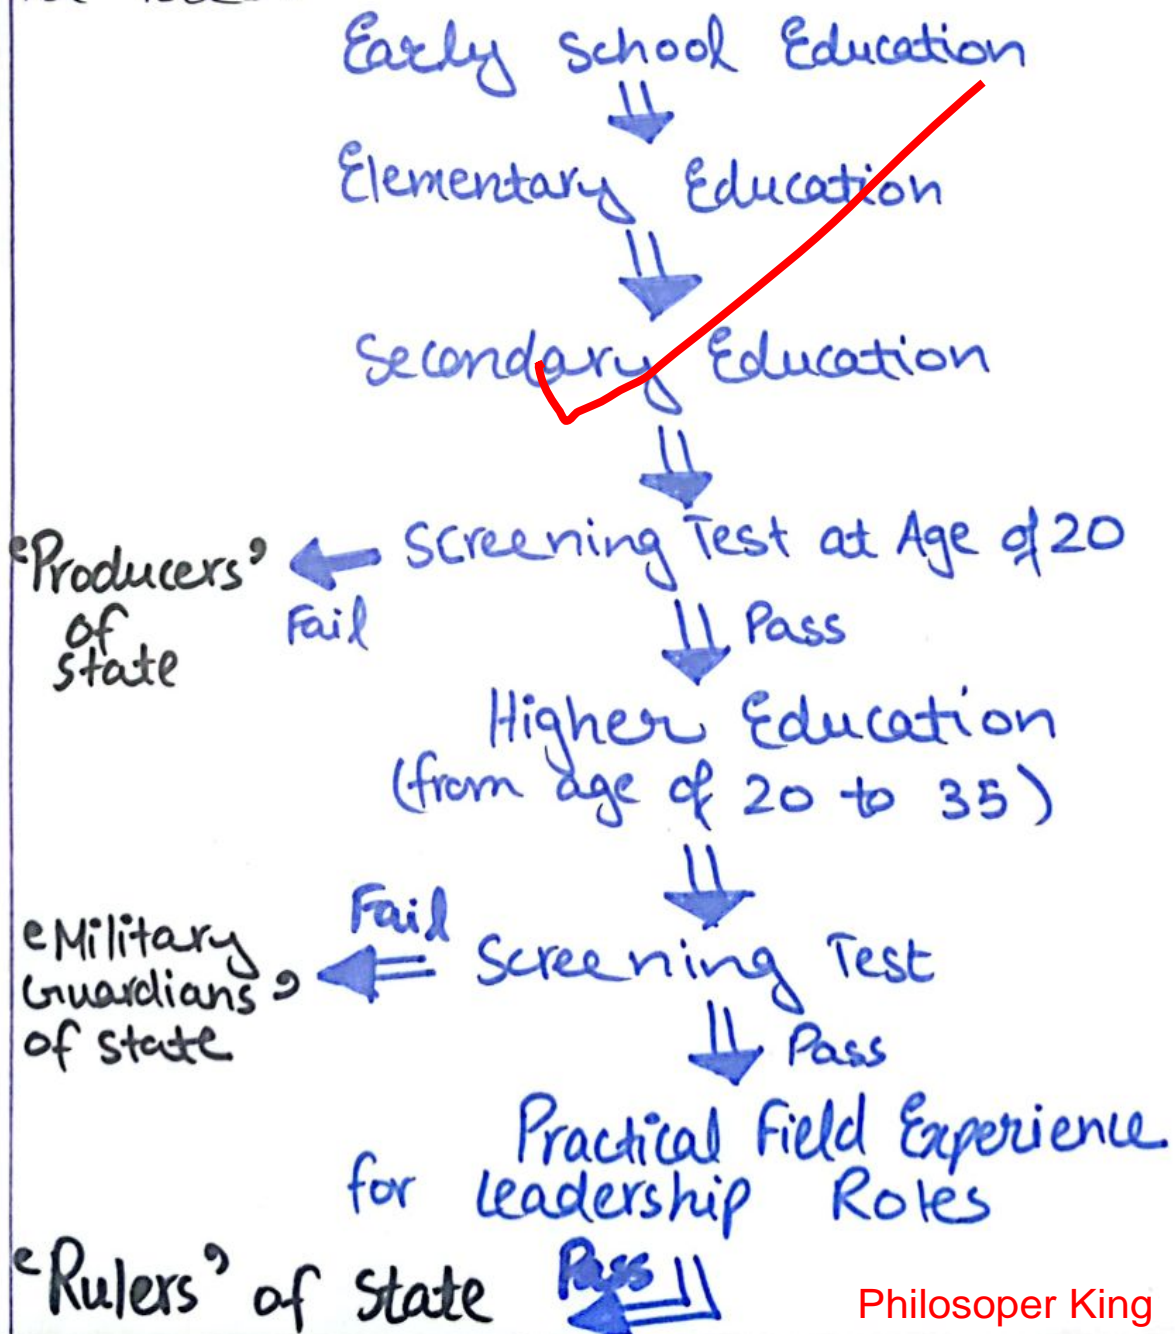 Early School Education
Elementary Education
Secondary Education
Screening Test at Age of 20
'Producers'
of
state
Fail
Pass
Higher Education
(from age of 20 to 35)
Fail
'Military
Guardians'
of state
Screening Test
Pass
Practical Field Experience
for Leadership Roles
Pass
'Rulers' of State
Philosoper King